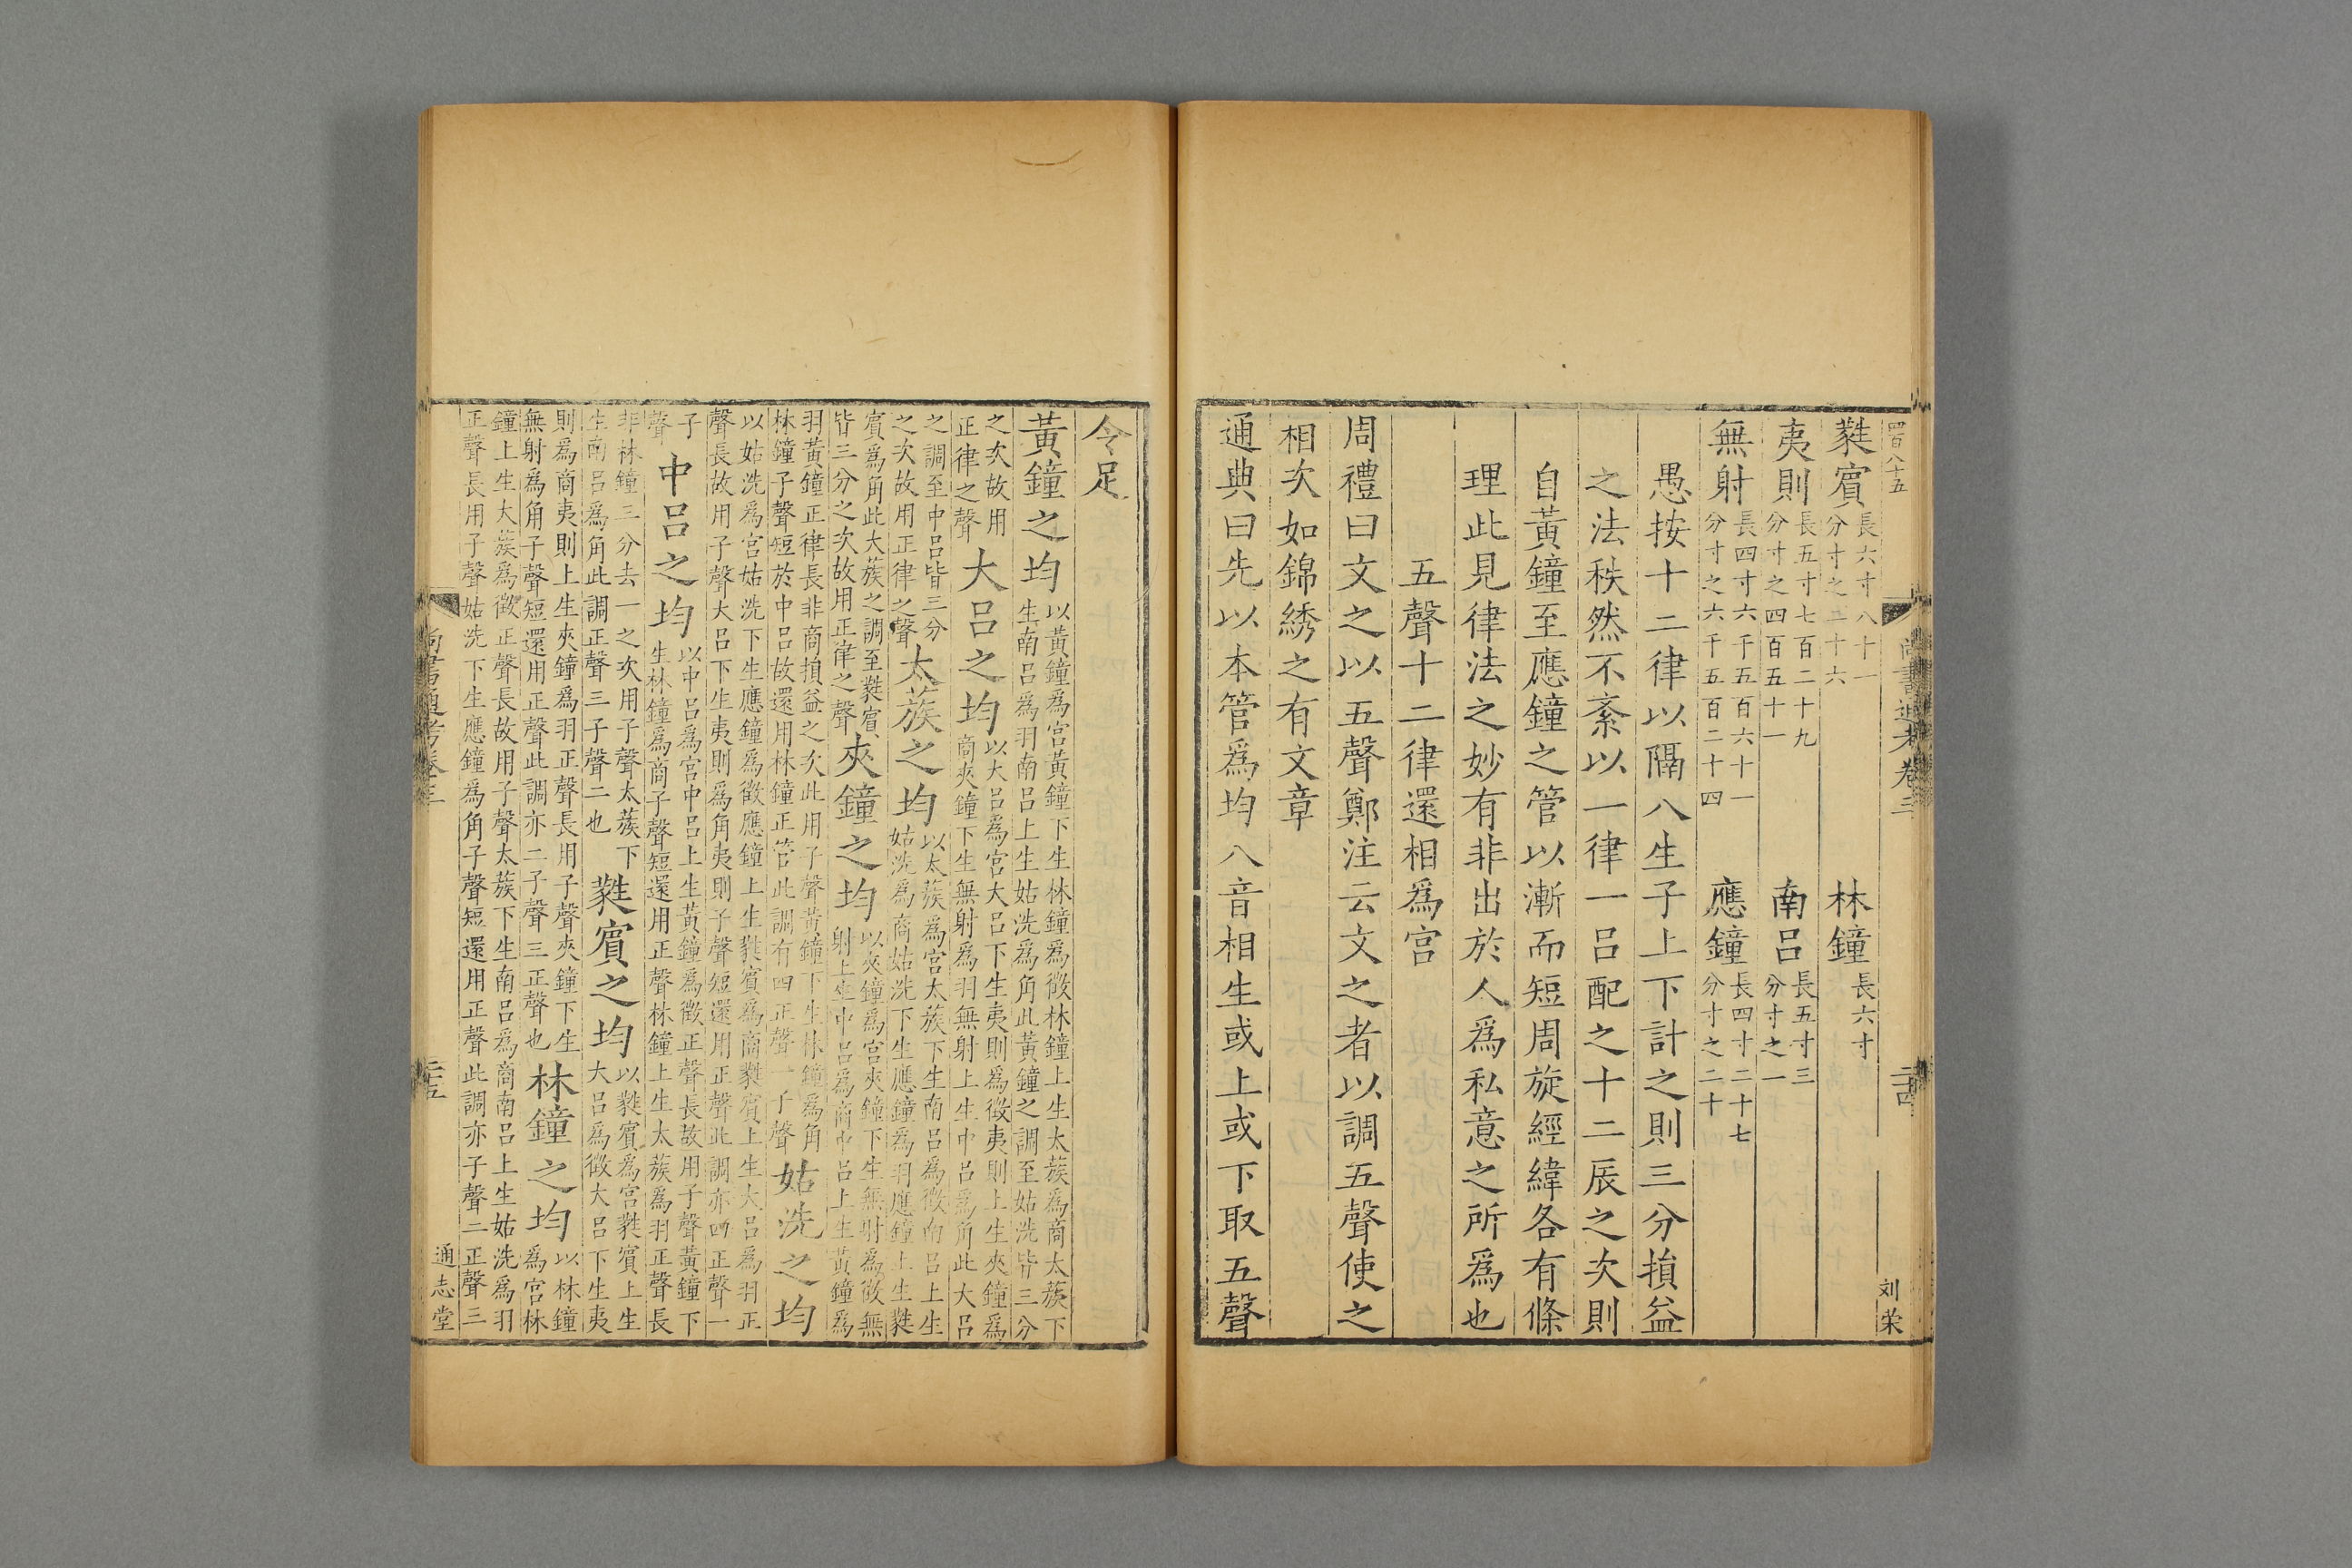 四百八十五
尚書通考卷三
二十四
刘荣
蕤賓
長六寸八十一
分寸之二十六
林鐘
長六寸
夷則
長五寸七百二十九
分寸之四百五十一
南呂
長五寸三
分寸之一
無射
長四寸六千五百六十一
分寸之六千五百二十四
應鐘
長四寸二十七
分寸之二十
愚按十二律以隔八生子上下計之則三分損益
之法秩然不紊以一律一呂配之十二辰之次則
自黃鐘至應鐘之管以漸而短周旋經緯各有條
理此見律法之妙有非出於人爲私意之所爲也
五聲十二律還相爲宮
周禮曰文之以五聲鄭注云文之者以調五聲使之
相次如錦綉之有文章
通典曰先以本管爲均八音相生或上或下取五聲
令足
黃鐘之均
以黃鐘爲宮黃鐘下生林鐘爲徵林鐘上生太蔟爲商太蔟下
生南呂爲羽南呂上生姑洗爲角此黃鐘之調至姑洗皆三分
之次故用
正律之聲
大呂之均
以大呂爲宮大呂下生夷則爲徵夷則上生夾鐘爲
商夾鐘下生無射爲羽無射上生中呂爲角此大呂
之調至中呂皆三分
之次故用正律之聲
太蔟之均
以太蔟爲宮太蔟下生南呂爲徵南呂上生
姑洗爲商姑洗下生應鐘爲羽應鐘上生蕤
賓爲角此大蔟之調至蕤賓
皆三分之次故用正律之聲
夾鐘之均
以夾鐘爲宮夾鐘下生無射爲徵無
射上生中呂爲商中呂上生黃鐘爲
羽黃鐘正律長非商損益之次此用子聲黃鐘下生林鐘爲角
林鐘子聲短於中呂故還用林鐘正管此調有四正聲一子聲
姑洗之均
以姑洗爲宮姑洗下生應鐘爲徵應鐘上生蕤賓爲商蕤賓上生大呂爲羽正
聲長故用子聲大呂下生夷則爲角夷則子聲短還用正聲此調亦四正聲一
子
聲
中呂之均
以中呂爲宮中呂上生黃鐘爲徵正聲長故用子聲黃鐘下
生林鐘爲商子聲短還用正聲林鐘上生太蔟爲羽正聲長
非林鐘三分去一之次用子聲太蔟下
生南呂爲角此調正聲三子聲二也
蕤賓之均
以蕤賓爲宮蕤賓上生
大呂爲徵大呂下生夷
則爲商夷則上生夾鐘爲羽正聲長用子聲夾鐘下生
無射爲角子聲短還用正聲此調亦二子聲三正聲也
林鐘之均
以林鐘
爲宮林
鐘上生大蔟爲徵正聲長故用子聲太蔟下生南呂爲商南呂上生姑洗爲羽
正聲長用子聲姑洗下生應鐘爲角子聲短還用正聲此調亦子聲二正聲三
尚書通考卷三
二十五
通志堂